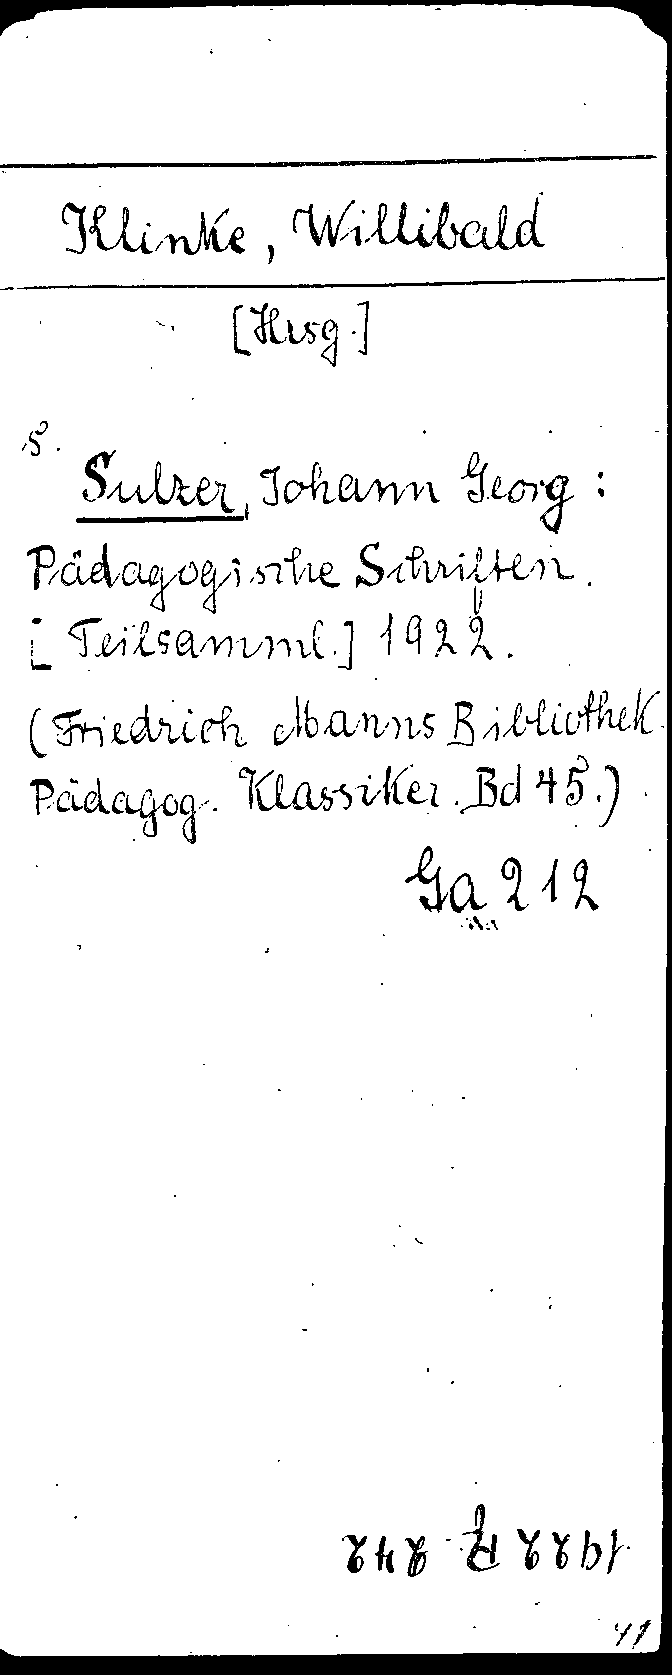 Klinke, Willibald
[Hrsg.]
s.
Sulzer, Johann Georg:
Pädagogische Schriften.
[Teilsamml.] 1922.
(Friedrich Manns Bibliothek.
Pädagog. Klassiker. Bd 45.)
Ga 212
1922 R 242
41